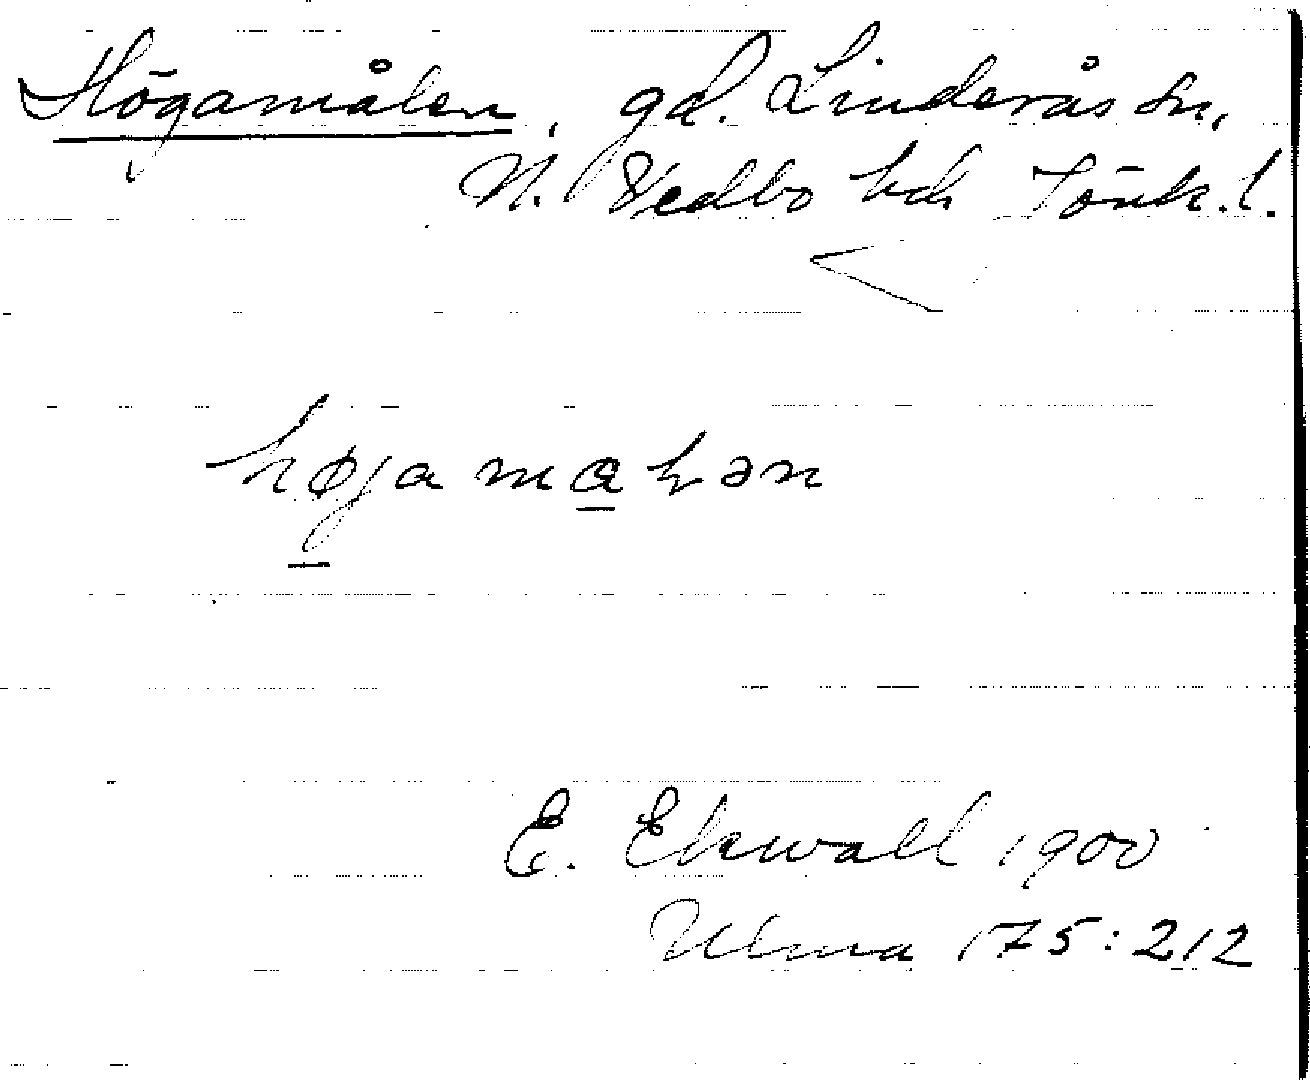 Högamålen, gd. Linderås sn,
N. Vedbo hd Jönk. l.
højamaɽən
E. Ekwall 1900
Ulma 175:212